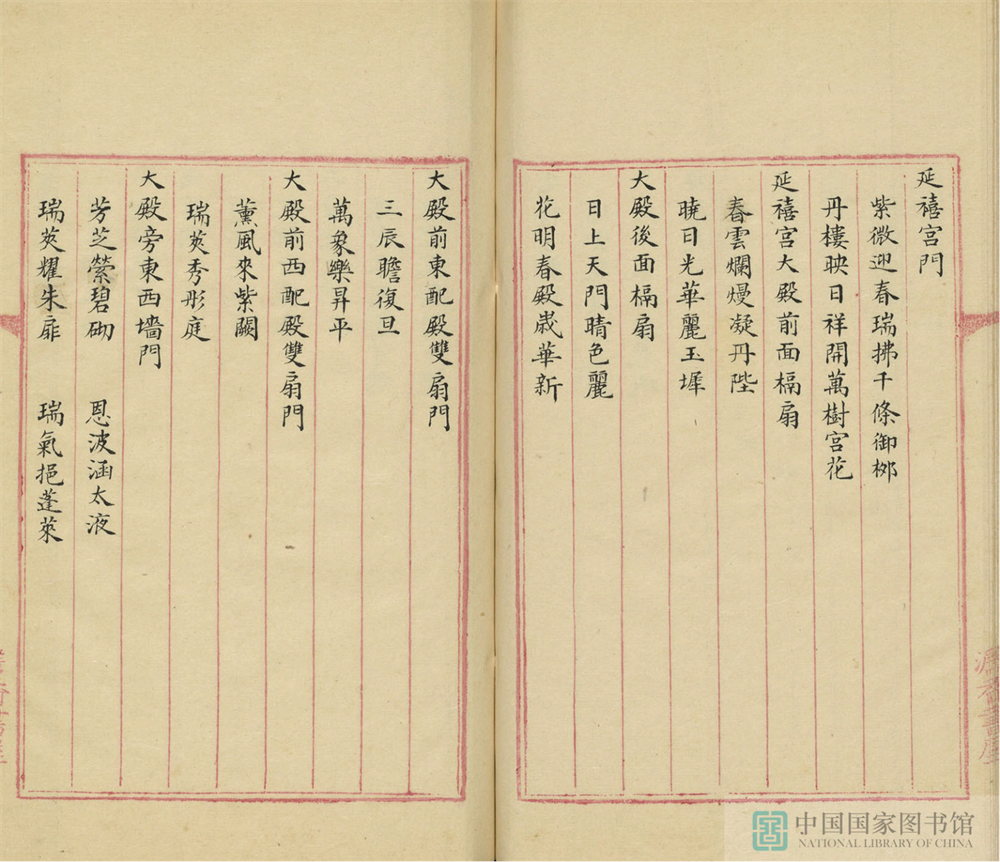 延禧宮門
紫微迎春瑞拂千條御栁
丹樓映日祥開萬樹宮花
延禧宮大殿前面槅扇
春雲爛熳凝丹陛
曉日光華麗玉墀
大殿後面槅扇
日上天門晴色麗
花明春殿歲華新
大殿前東配殿雙扇門
三辰瞻復旦
萬象樂昇平
大殿前西配殿雙扇門
薰風來紫闕
瑞莢秀彤庭
大殿旁東西墻門
芳芝縈碧砌　恩波涵太液
瑞莢耀朱扉　瑞氣挹蓬萊
中国国家图书馆
NATIONAL LIBRARY OF CHINA